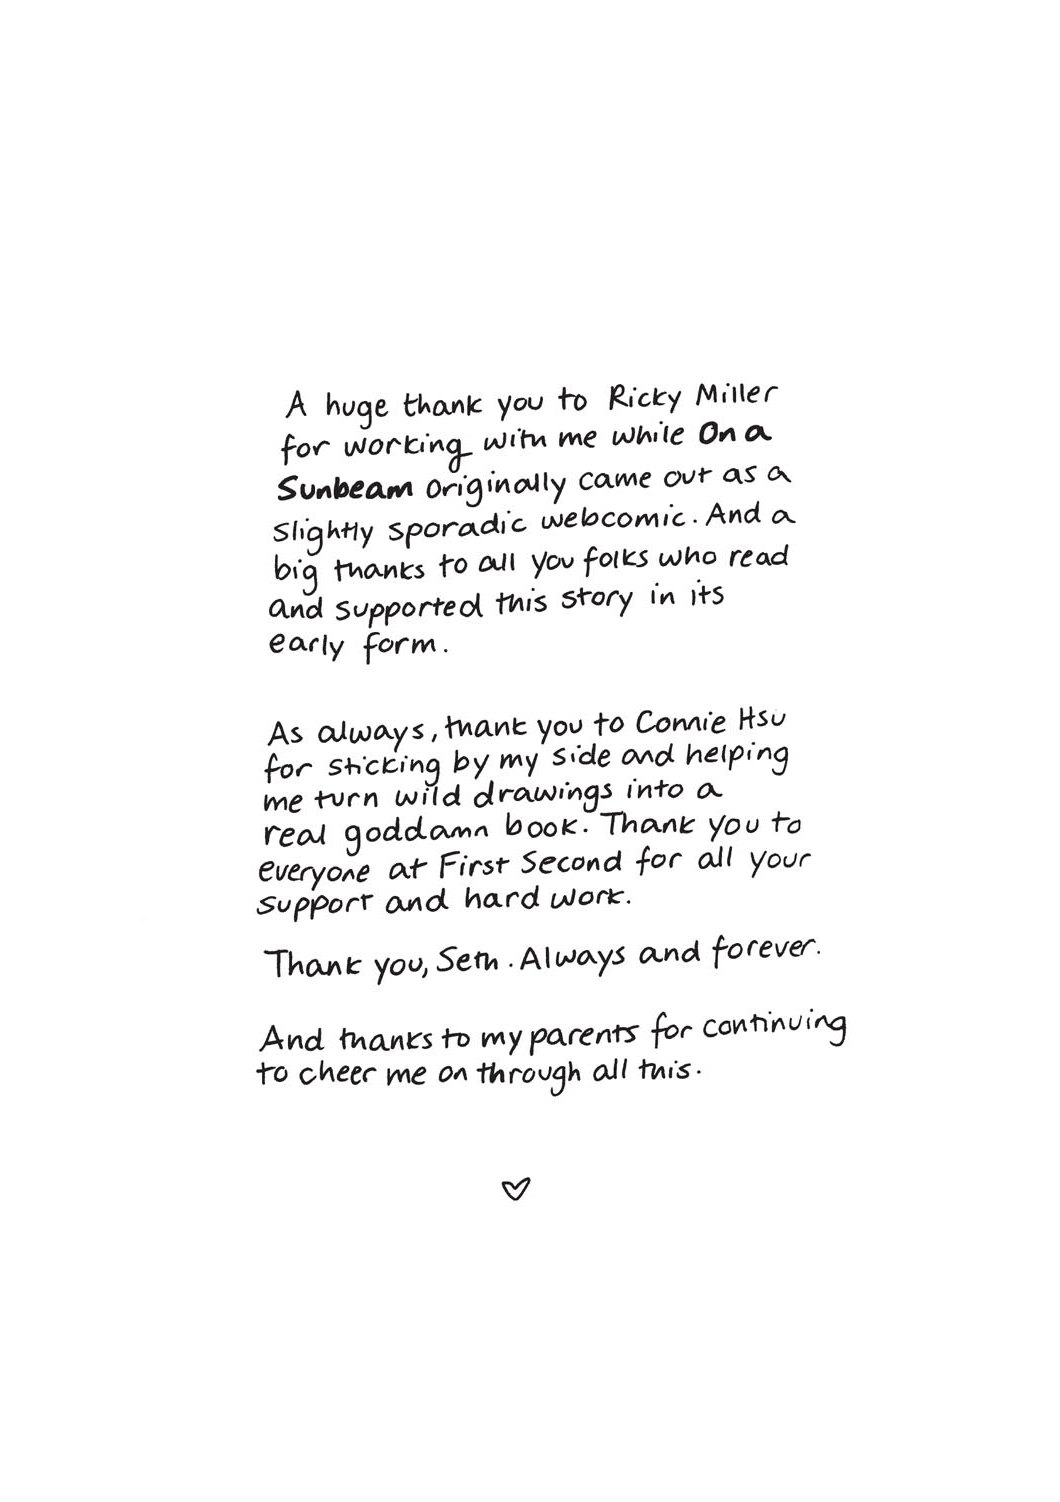 A huge thank you to Ricky Miller
for working with me while On a
Sunbeam originally came out as a
slightly sporadic webcomic. And a
big thanks to all you folks who read
and supported this story in its
early form.
As always, thank you to Connie Hsu
for sticking by my side and helping
me turn wild drawings into a
real goddamn book. Thank you to
everyone at First Second for all your
support and hard work.
Thank you, Seth. Always and forever.
And thanks to my parents for continuing
to cheer me on through all this.